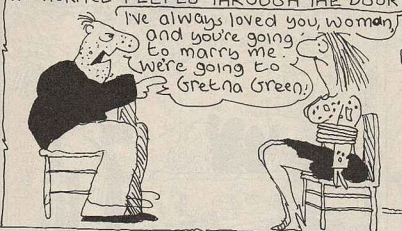 PEEPED THROUGH THE DOOR
I've always loved you, woman,
and you're going
to marry me
we're going to
Gretna Green!